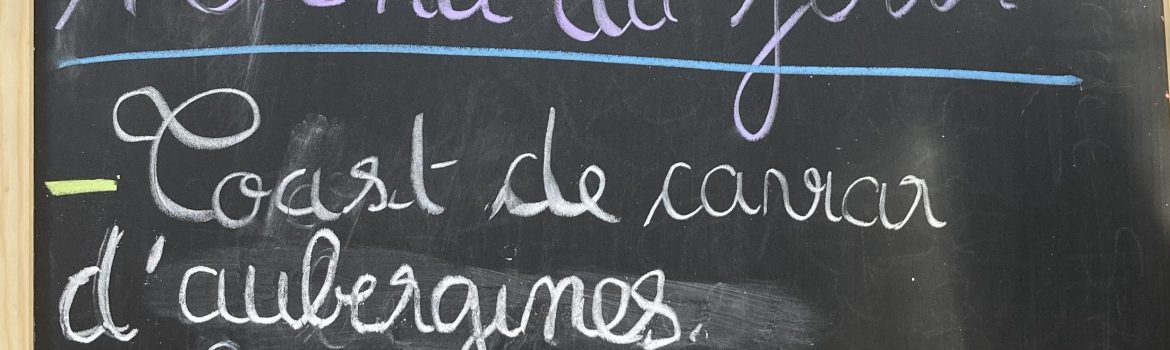 Menu du jour
- Toast de caviar
d'aubergines.